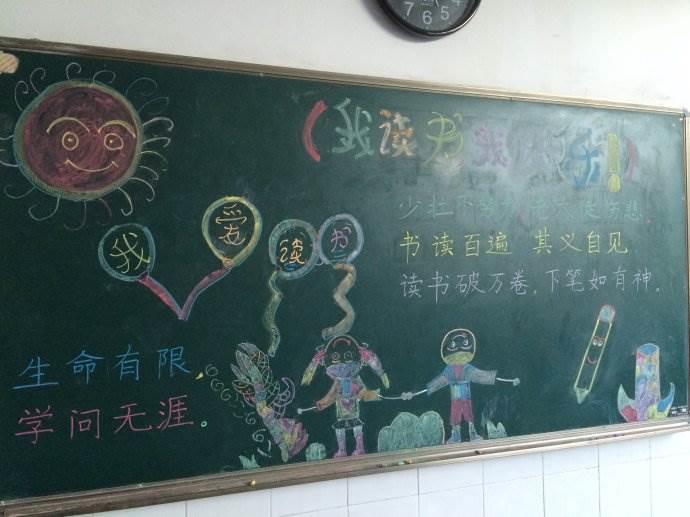 7 6 5
(我读书 我快乐!)
我爱读书
少壮不 伤悲.
书读百遍 其义自见
读书破万卷,下笔如有神.
生命有限,
学问无涯。